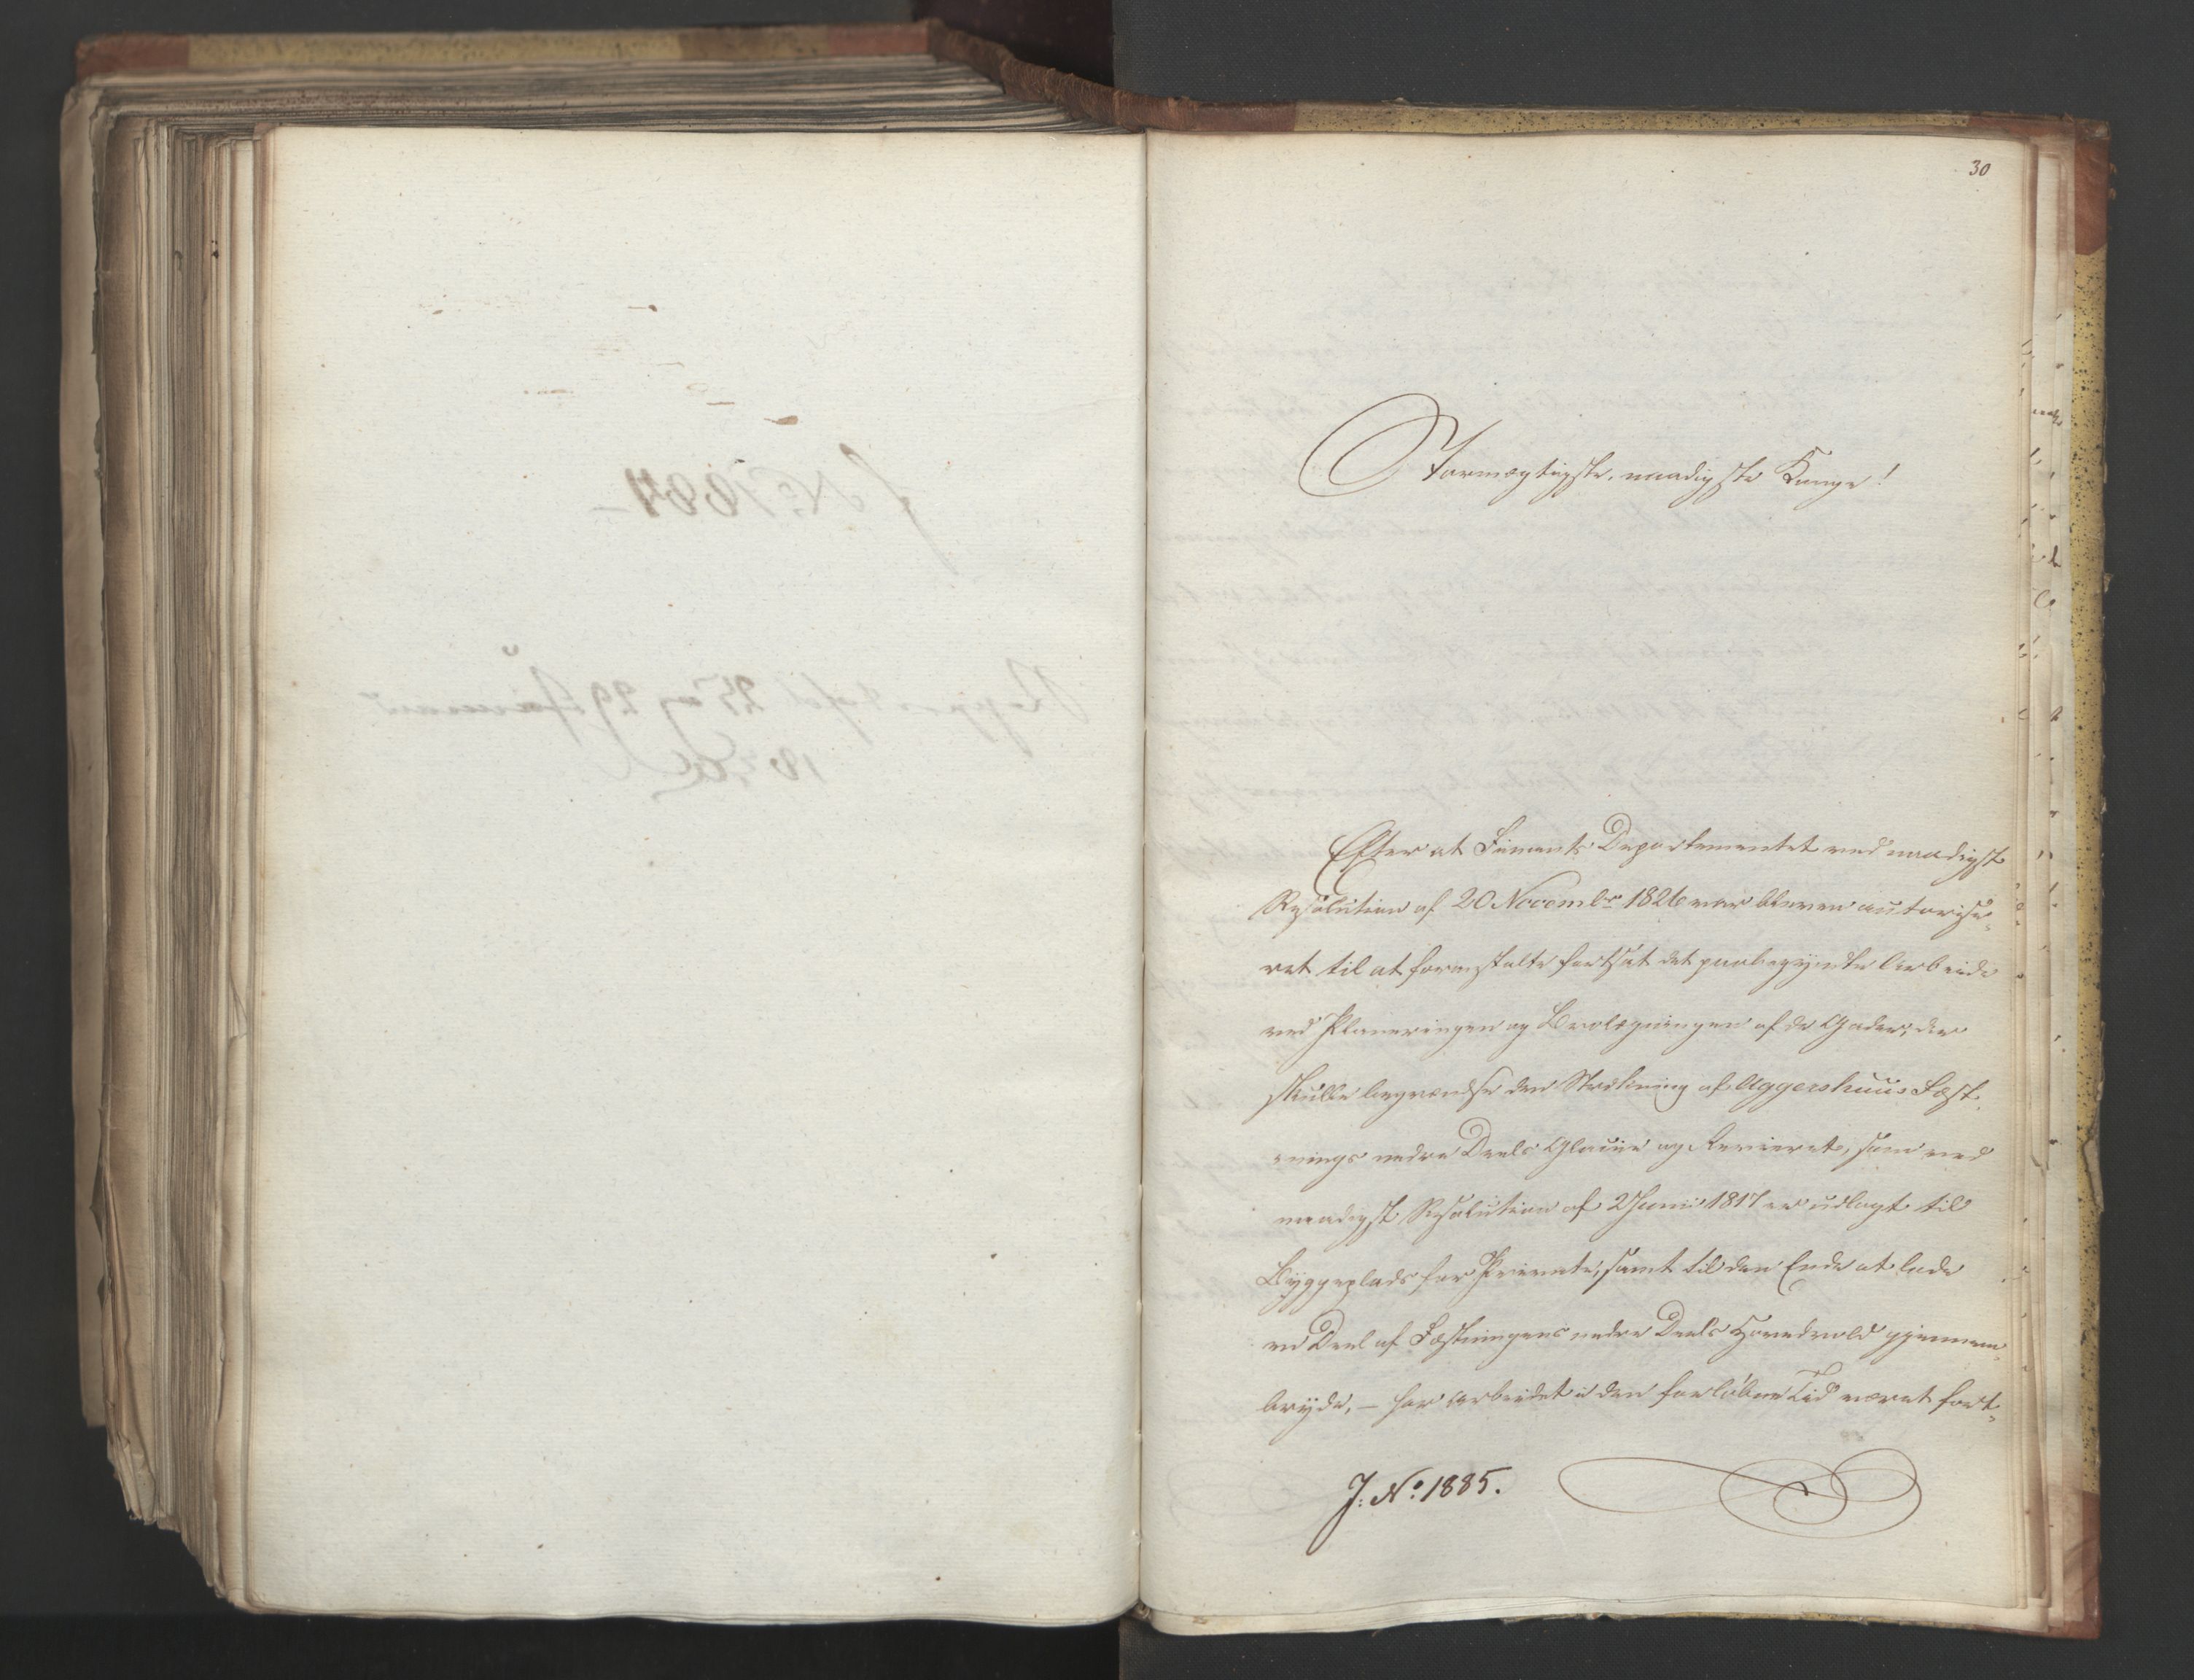 30
Stormægtigste, naadigste Konge!
Efter at Finants Departementet ved naadigst
Resolution af 20 Novembr 1826 var bleven autorise-
ret til at foranstalte fortsat det paabegyndte Arbeide
ved Planeringen og Brolægningen af de Gader, der
skulle begrændse den Strækning af Aggershuus Fæst-
nings nedre Deels Glacie og Ravieret, som ved
naadigst Resolution af 2 Juni 1817 er udlagt til
Byggeplads for Private, samt til den Ende at lade
en Deel af Fæstningens nedre Deels Hovedvold gjennem-
bryde, – har Arbeidet i den forløbne Tid været fort-
J: No. 1885.